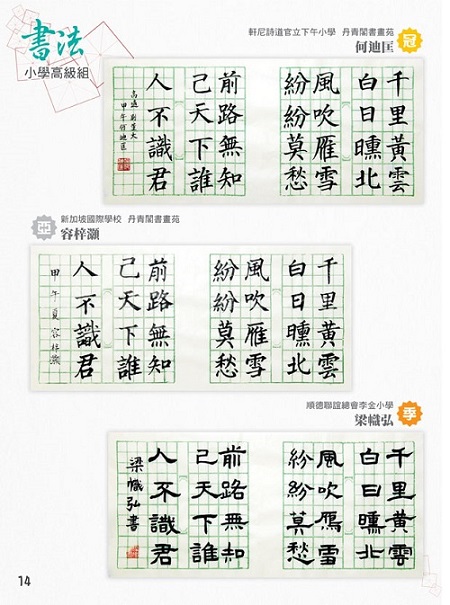 書法
小學高級組
軒尼詩道官立下午小學 丹青閣書畫苑
何迪匡
冠
千里黃雲
白日曛北
風吹雁雪
紛紛莫愁
前路無知
己天下誰
人不識君
高適 別董大
甲午何迪匡
新加坡國際學校 丹青閣書畫苑
容梓灝
亞
千里黃雲
白日曛北
風吹雁雪
紛紛莫愁
前路無知
己天下誰
人不識君
甲午夏容梓灝
順德聯誼總會李金小學
梁幟弘
季
千里黃雲
白日曛北
風吹雁雪
紛紛莫愁
前路無知
己天下誰
人不識君
梁幟弘書
14